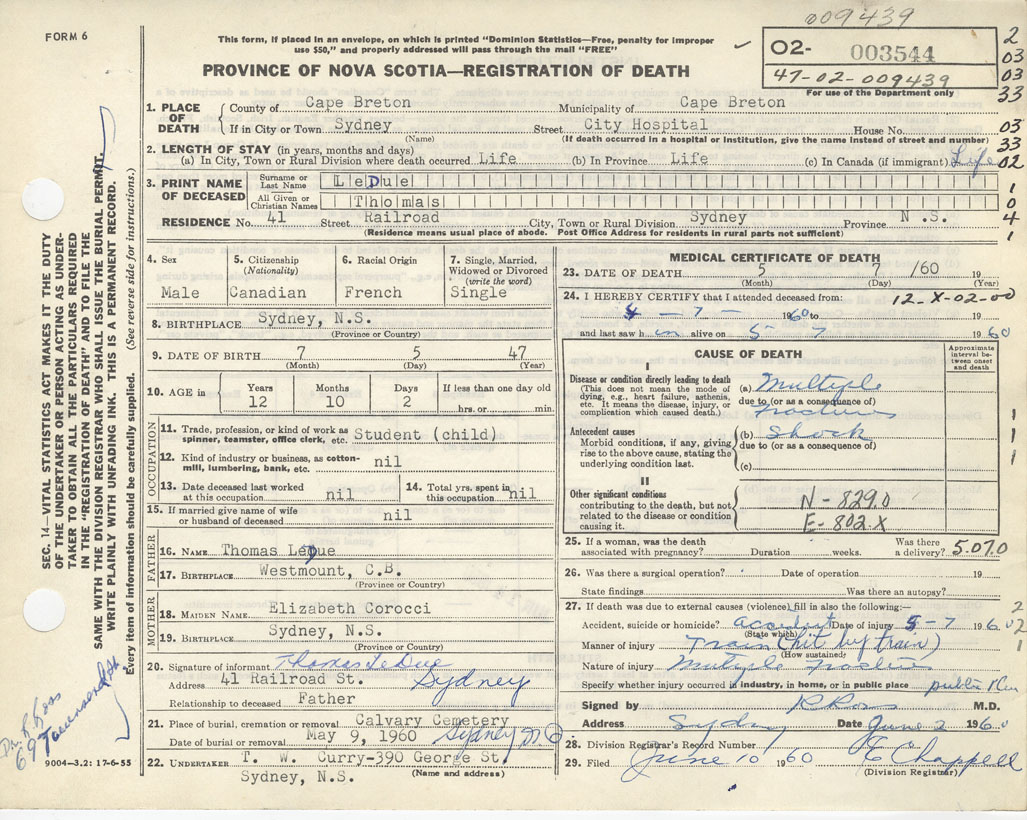 009439
FORM 6
This form, if placed in an envelope, on which is printed "Dominion Statistics—Free, penalty for improper
use $50," and properly addressed will pass through the mail "FREE"
PROVINCE OF NOVA SCOTIA—REGISTRATION OF DEATH
O2- 003544
47-02-009439
For use of the Department only
2
03
03
33
1. PLACE OF DEATH { County of Cape Breton Municipality of Cape Breton
If in City or Town Sydney Street City Hospital House No. 03
(Name) (If death occurred in a hospital or institution, give the name instead of street and number) 33
2. LENGTH OF STAY (in years, months and days)
(a) In City, Town or Rural Division where death occurred Life (b) In Province Life (c) In Canada (if immigrant) Life 02
3. PRINT NAME OF DECEASED
Surname or Last Name LeDue 1
All Given or Christian Names Thomas 0
RESIDENCE No. 41 Street Railroad City, Town or Rural Division Sydney Province N.S. 4
(Residence means usual place of abode. Post Office Address for residents in rural parts not sufficient) 1
4. Sex
Male
5. Citizenship (Nationality)
Canadian
6. Racial Origin
French
7. Single, Married, Widowed or Divorced (write the word)
Single
8. BIRTHPLACE Sydney, N.S.
(Province or Country)
9. DATE OF BIRTH 7 5 47
(Month) (Day) (Year)
10. AGE in Years Months Days If less than one day old
12 10 2 hrs. or min.
OCCUPATION
11. Trade, profession, or kind of work as spinner, teamster, office clerk, etc. Student (child)
12. Kind of industry or business, as cotton-mill, lumbering, bank, etc. nil
13. Date deceased last worked at this occupation nil
14. Total yrs. spent in this occupation nil
15. If married give name of wife or husband of deceased nil
FATHER
16. NAME Thomas LeDue
17. BIRTHPLACE Westmount, C.B.
(Province or Country)
MOTHER
18. MAIDEN NAME Elizabeth Corocci
19. BIRTHPLACE Sydney, N.S.
(Province or Country)
20. Signature of informant Thomas LeDue
Address 41 Railroad St. Sydney
Relationship to deceased Father
21. Place of burial, cremation or removal Calvary Cemetery
Date of burial or removal May 9, 1960 Sydney N.S.
22. UNDERTAKER T. W. Curry-390 George St.
Sydney, N.S. (Name and address)
MEDICAL CERTIFICATE OF DEATH
23. DATE OF DEATH 5 7 /60 19
(Month) (Day) (Year)
24. I HEREBY CERTIFY that I attended deceased from: 12-X-02-00
5-7- 1960 to 19
and last saw h im alive on 5- 7 1960
CAUSE OF DEATH
Approximate interval between onset and death
I
Disease or condition directly leading to death
(This does not mean the mode of dying, e.g., heart failure, asthenia, etc. It means the disease, injury, or complication which caused death.)
(a) Multiple
due to (or as a consequence of)
fractures
Antecedent causes
Morbid conditions, if any, giving rise to the above cause, stating the underlying condition last.
(b) Shock
due to (or as a consequence of)
(c)
1
1
1
II
Other significant conditions
contributing to the death, but not related to the disease or condition causing it.
N-829.0
E-802.X
25. If a woman, was the death associated with pregnancy? Duration weeks. Was there a delivery? 5.07.0
26. Was there a surgical operation? Date of operation 19
State findings Was there an autopsy?
27. If death was due to external causes (violence) fill in also the following:— 2
Accident, suicide or homicide? accident Date of injury 5-7 1960 2
(State which)
Manner of injury Train (hit by train) 1
(How sustained)
Nature of injury Multiple fractures
Specify whether injury occurred in industry, in home, or in public place public
Signed by R Ross M.D.
Address Sydney Date June 2 1960
28. Division Registrar's Record Number
29. Filed June 10 1960 E Chappell
(Division Registrar)
SEC. 14—VITAL STATISTICS ACT MAKES IT THE DUTY
OF THE UNDERTAKER OR PERSON ACTING AS UNDER-
TAKER TO OBTAIN ALL THE PARTICULARS REQUIRED
IN THE "REGISTRATION OF DEATH" AND TO FILE THE
SAME WITH THE DIVISION REGISTRAR WHO SHALL ISSUE THE BURIAL PERMIT.
WRITE PLAINLY WITH UNFADING INK. THIS IS A PERMANENT RECORD.
Every item of information should be carefully supplied. (See reverse side for instructions.)
Dr. R Ross
69 Townsend St.
9004—3.2: 17-6-55